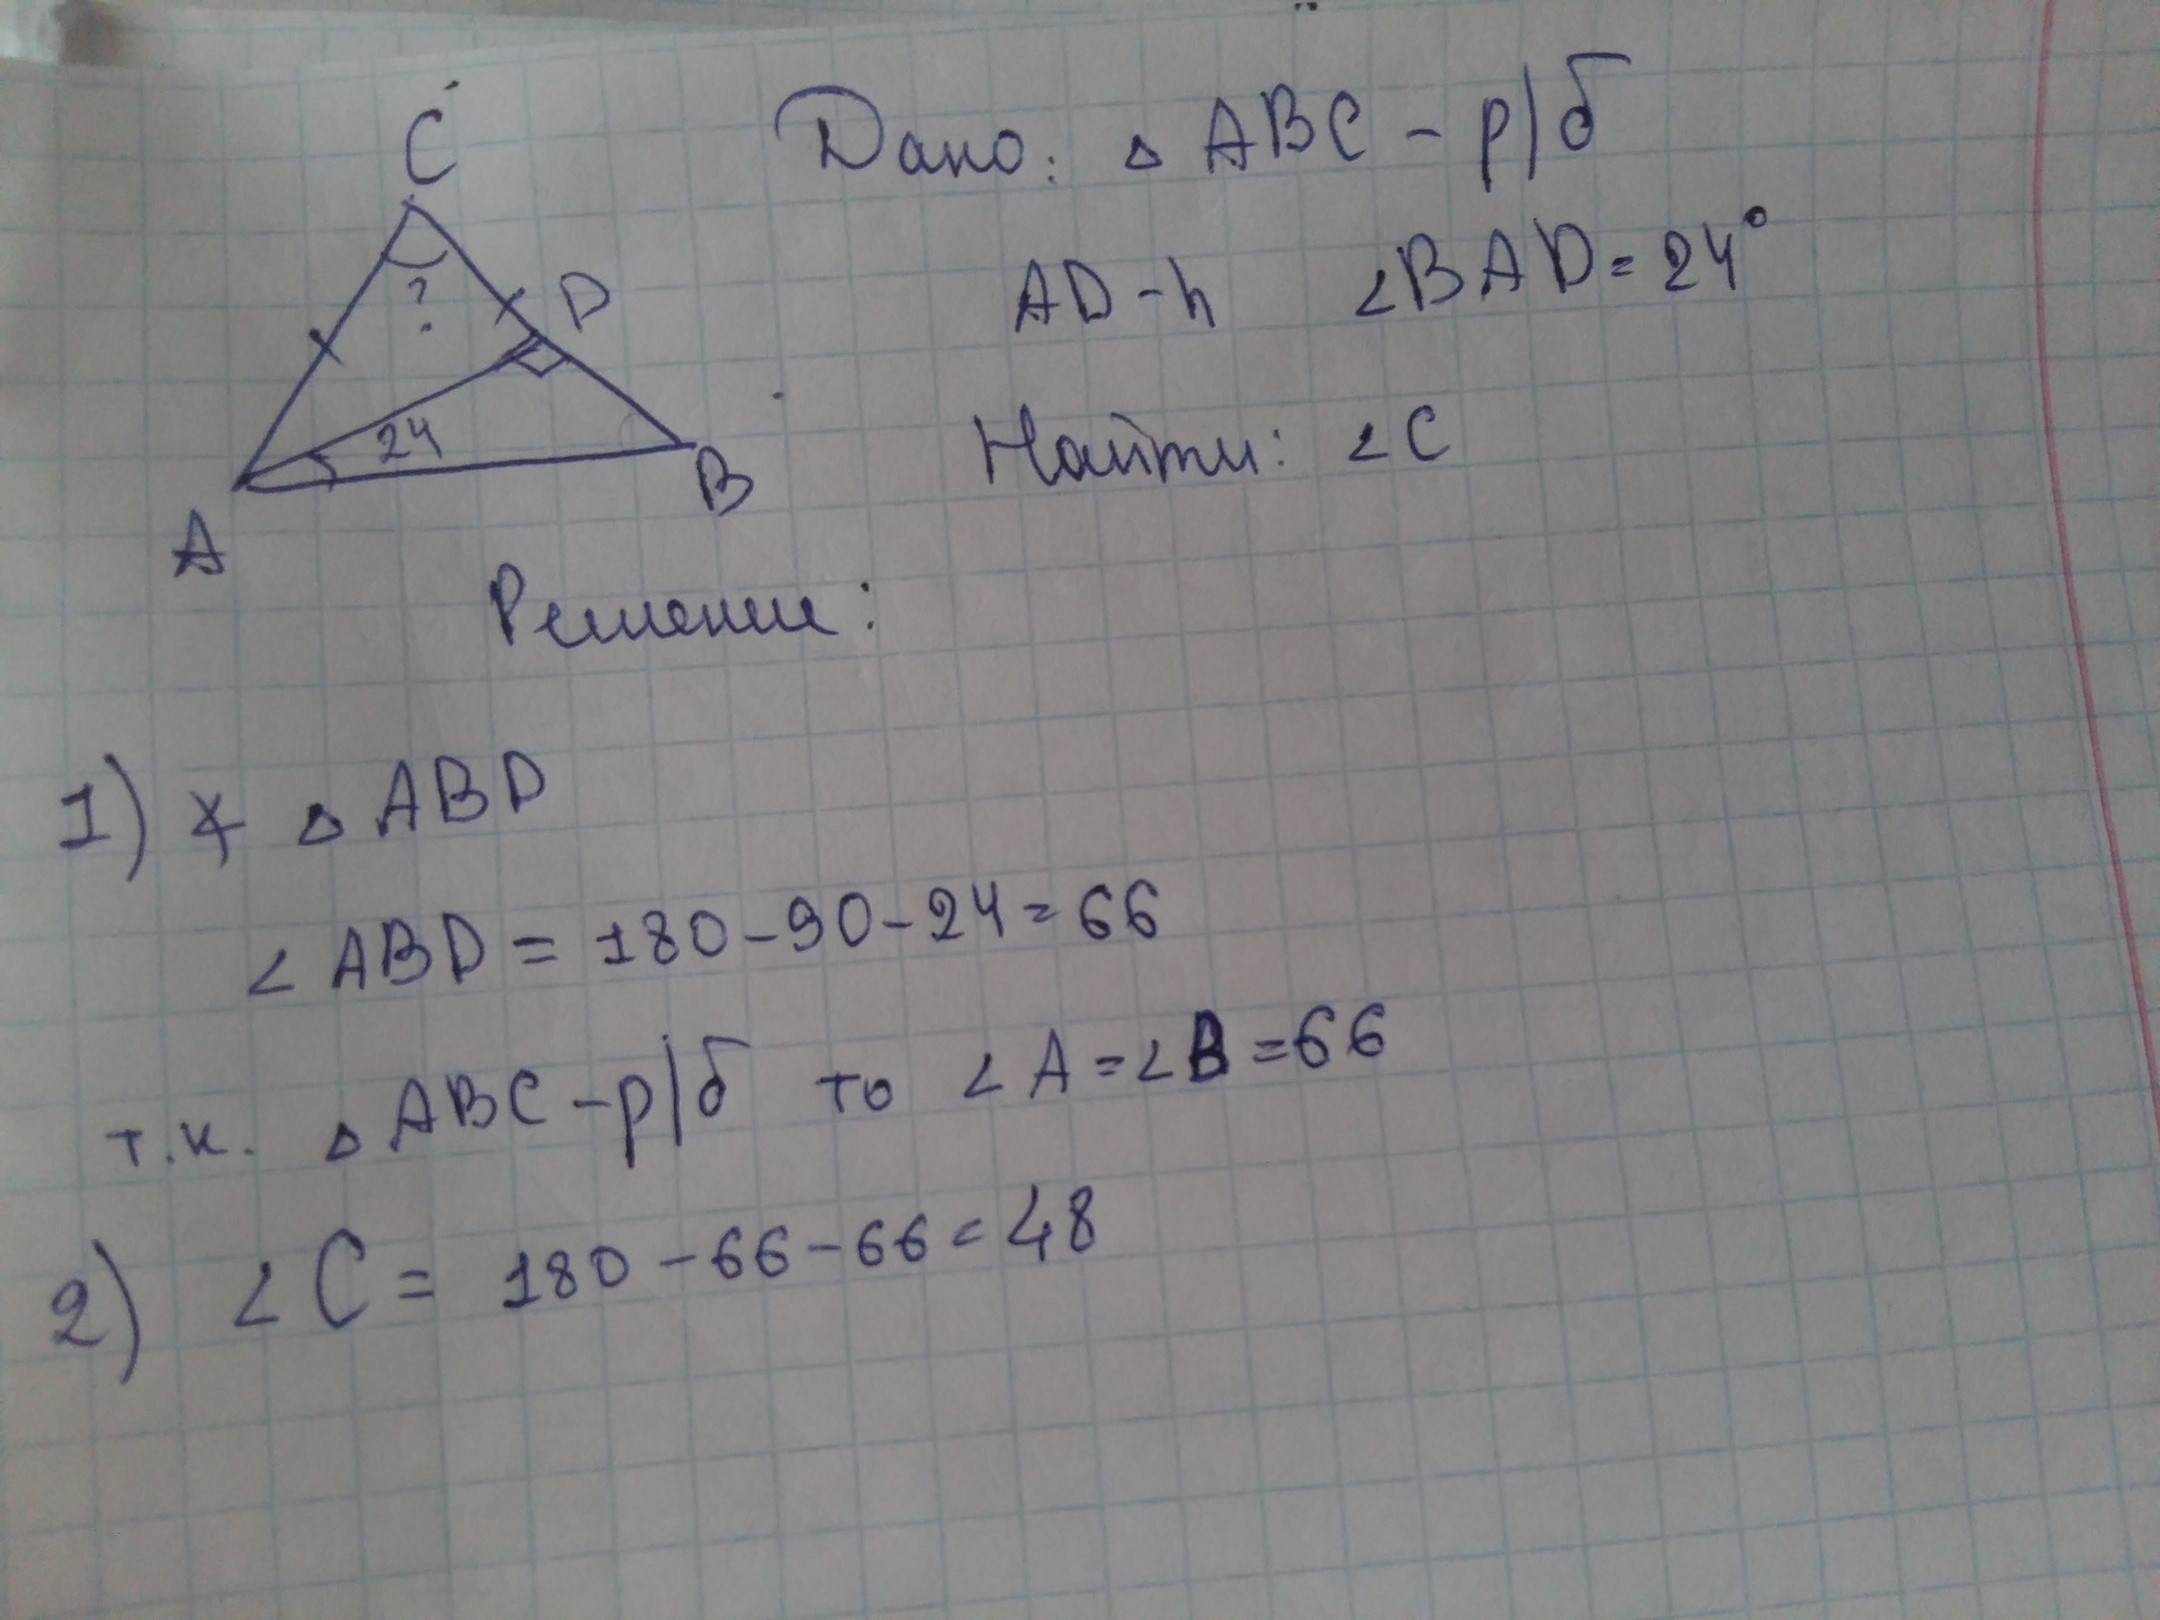 C
Дано: △ ABC - р/б
D
AD - h ∠BAD = 24°
?
24
Найти: ∠C
B
A
Решение:
1) ∡ △ ABD
∠ ABD = 180 - 90 - 24 = 66
т.к. △ ABC - р/б то ∠A = ∠B = 66
2) ∠C = 180 - 66 - 66 = 48